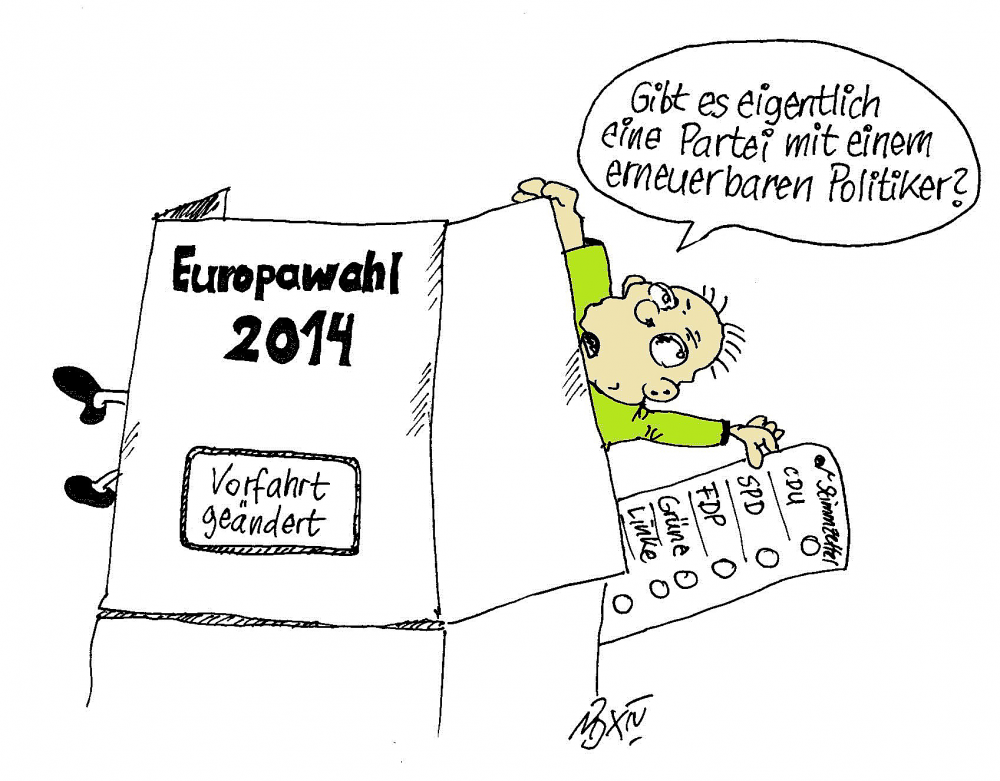 Gibt es eigentlich
eine Partei mit einem
erneuerbaren Politiker?
Europawahl
2014
Vorfahrt
geändert
Stimmzettel
CDU
SPD
FDP
Grüne
Linke
XIV